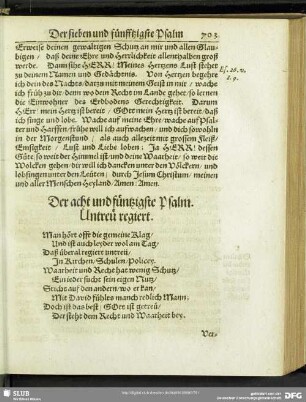 Der sieben und fünfftzigste Psalm 703
Erweise deinen gewaltigen Schutz an mir und allen Glau-
bigen / daß deine Ehre und Herrlichkeit allenthalben groß
werde. Dann siehe HERR / Meines Hertzens Lust stehet
zu deinem Namen und Gedächtnis. Von Hertzen begehre
ich dein des Nachts / darzu mit meinem Geist in mir / wache
ich früh zu dir: denn wo dein Recht im Lande gehet / so lernen
die Einwohner des Erdbodens Gerechtigkeit. Darum
HErr mein Hertz ist bereit / GOtt mein Hertz ist bereit / daß
ich singe und lobe. Wache auf meine Ehre / wache auf Psal-
ter und Harffen / frühe will ich aufwachen / und dich so wohl
in der Morgenstund / als auch allezeit mit grossem Fleiß /
Emsigkeit / Lust und Liebe loben: Ja HERR / dessen
Güte so weit der Himmel ist und deine Waarheit / so weit die
Wolcken gehen / dir will ich dancken unter den Völckern / und
lobsingen unter den Leuten; durch Jesum Christum / meinen
und aller Menschen Heyland / Amen / Amen.
Es. 26. v.
8. 9.
Der acht und füntzigste Psalm.
Untreü regiert.
Man hört offt die gemeine Klag /
Und ist auch leyder wol am Tag /
Daß überal regiert untreü /
In Kirchen / Schulen / Policey.
Waarheit und Recht hat wenig Schutz /
Ein ieder sucht sein eigen Nutz /
Sticht auf den andern / wo er kan /
Mit David fühlts manch redlich Mann.
Doch ist das best: GOtt ist getreü /
Der steht dem Recht und Waarheit bey.
Ver-
SLUB
DFG